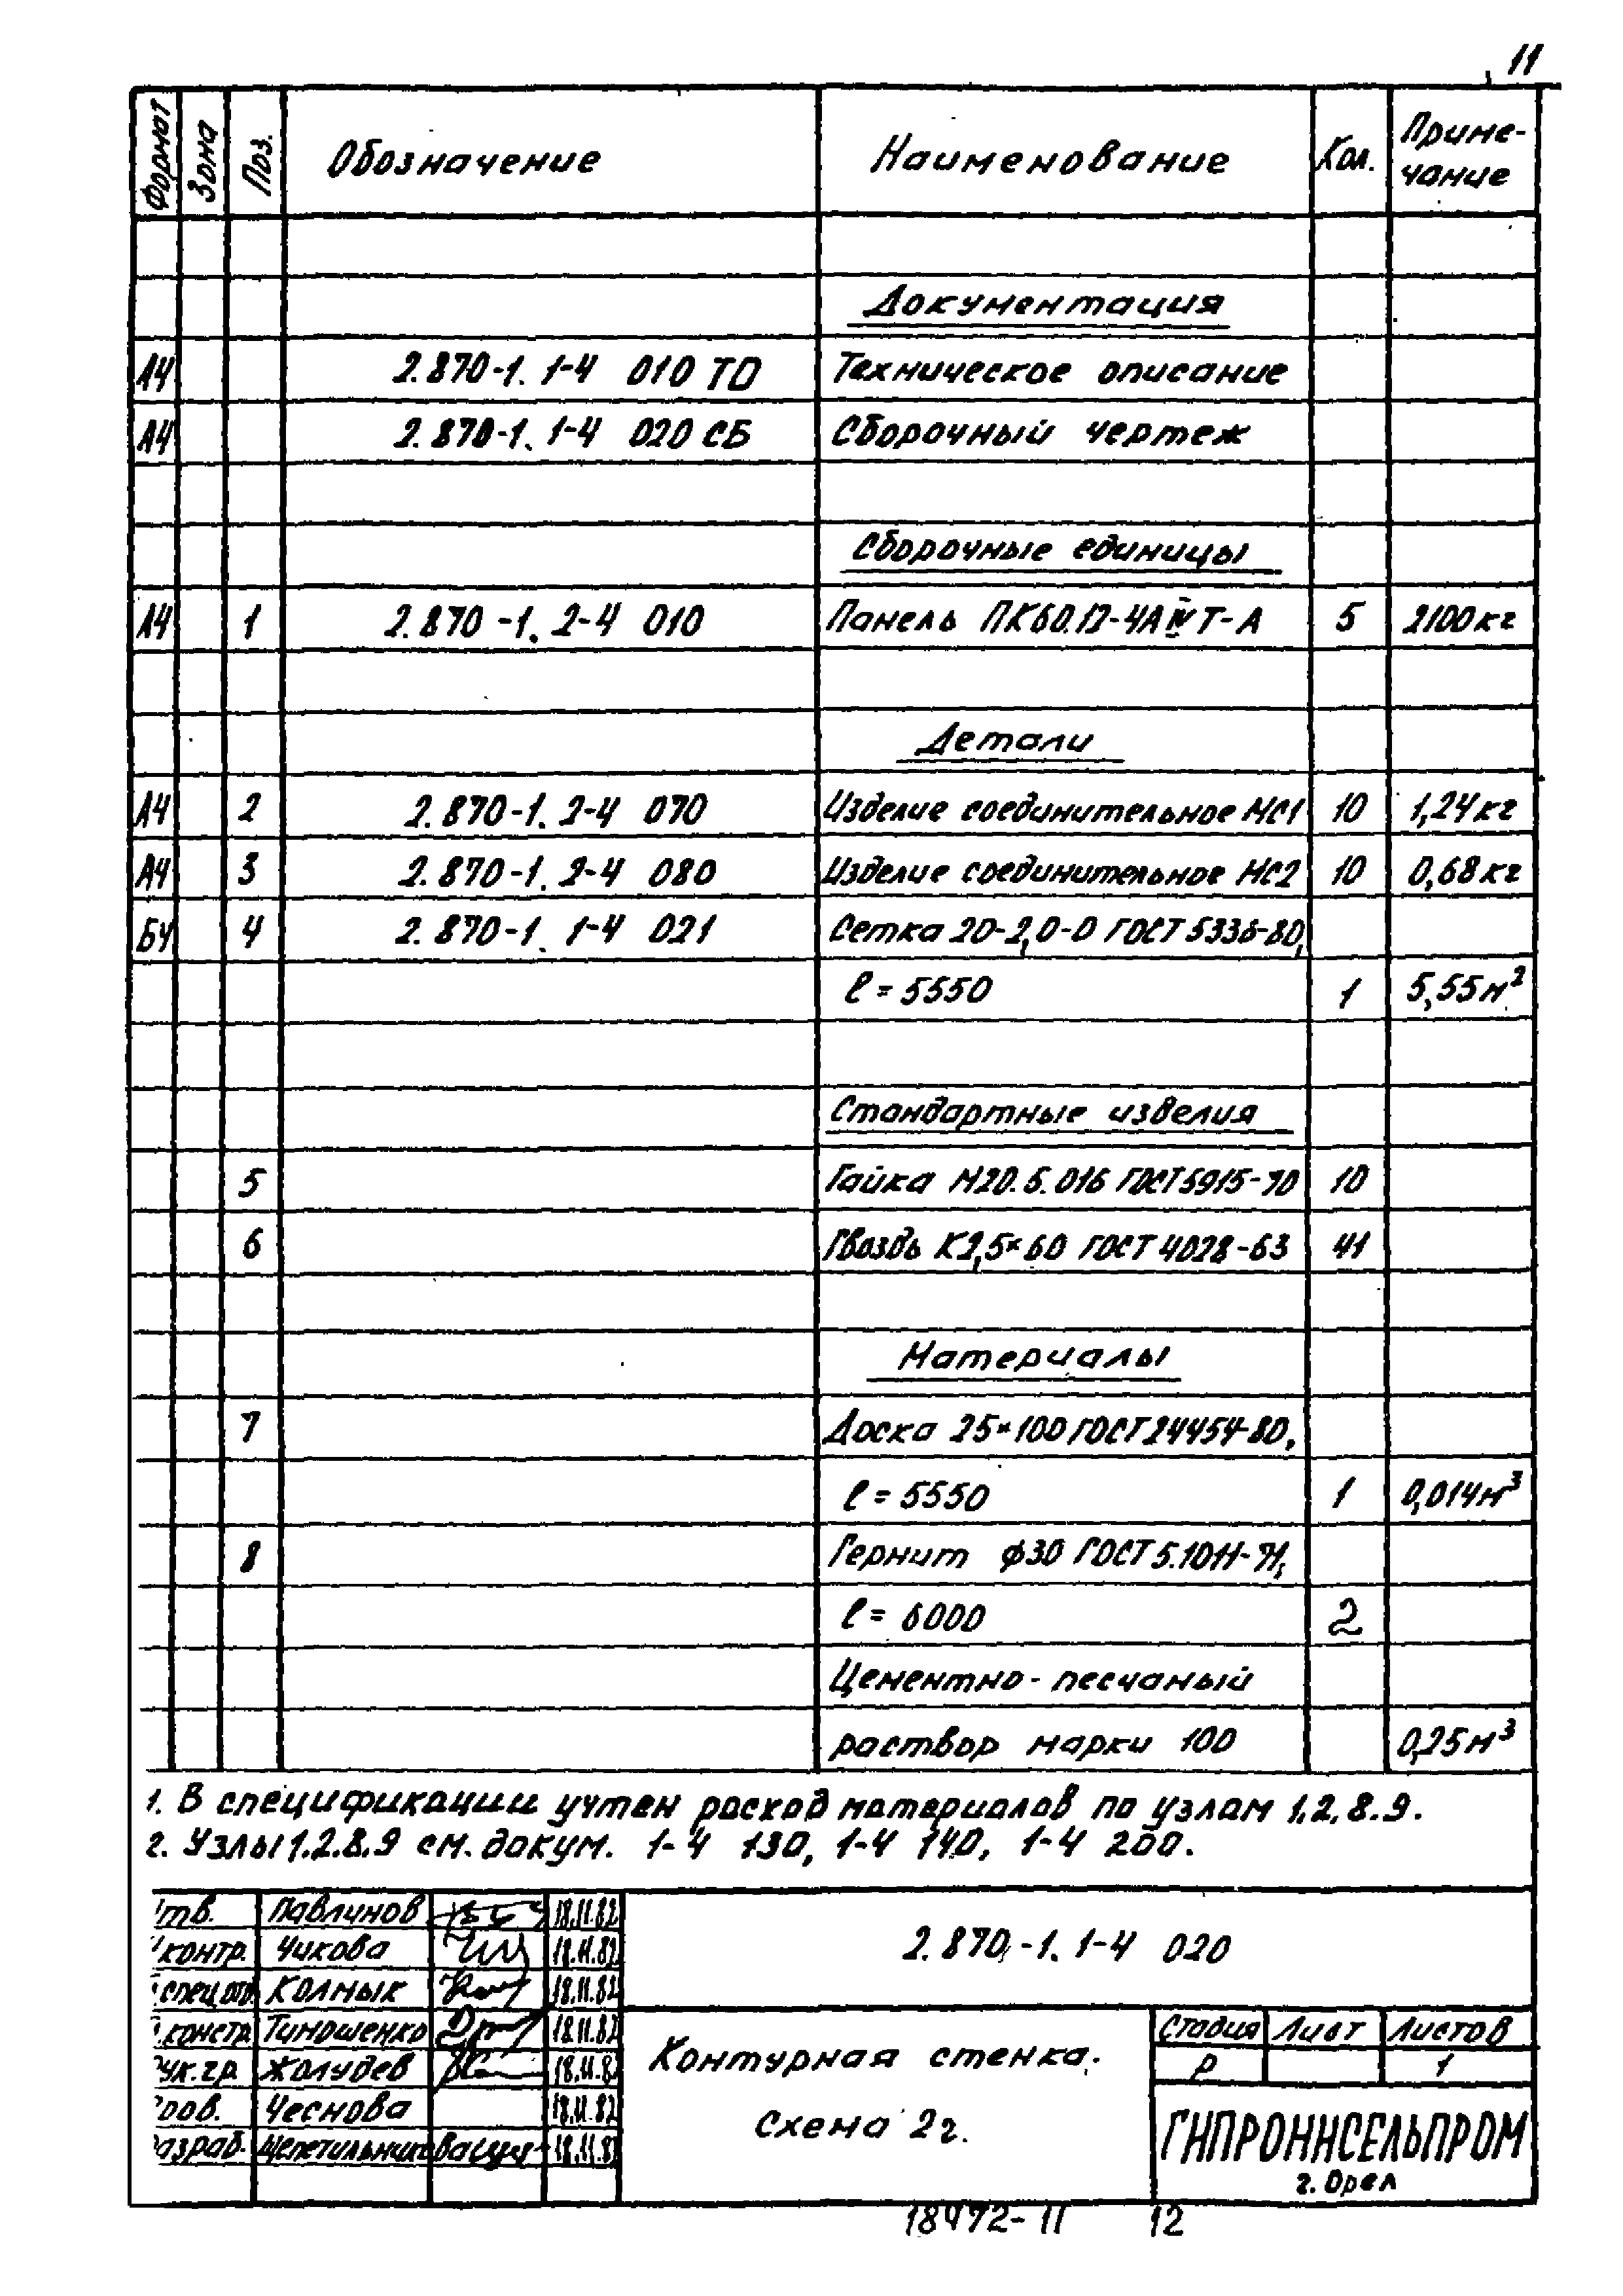 11
Формат Зона Поз. Обозначение Наименование Кол. Приме-
чание
Документация
А4 2.870-1. 1-4 010 ТО Техническое описание
А4 2.870-1. 1-4 020 СБ Сборочный чертеж
Сборочные единицы
А4 1 2.870-1. 2-4 010 Панель ПК60.12-4АIVТ-А 5 2100кг
Детали
А4 2 2.870-1. 2-4 070 Изделие соединительное МС1 10 1,24кг
А4 3 2.870-1. 2-4 080 Изделие соединительное МС2 10 0,68кг
БЧ 4 2.870-1. 1-4 021 Сетка 20-2,0-0 ГОСТ 5336-80,
ℓ = 5550 1 5,55м²
Стандартные изделия
5 Гайка М20.5.016 ГОСТ 5915-70 10
6 Гвоздь К2,5×60 ГОСТ 4028-63 41
Материалы
7 Доска 25×100 ГОСТ 24454-80,
ℓ = 5550 1 0,014м³
8 Гернит ф30 ГОСТ 5.1011-71,
ℓ = 6000 2
Цементно-песчаный
раствор марки 100 0,25м³
1. В спецификации учтен расход материалов по узлам 1.2.8.9.
2. Узлы 1.2.8.9 см. докум. 1-4 130, 1-4 140, 1-4 200.
тв. Павлинов 18.11.82
контр. Чикова 18.11.82
спец.отд Колмык 18.11.82
констр. Тимошенко 18.11.82
ук.гр. Жолудев 18.11.82
ров. Чеснова 18.11.82
азраб. 18.11.82
2.870-1. 1-4 020
Контурная стенка.
Схема 2г.
Стадия Лист Листов
Р 1
ГИПРОНИСЕЛЬПРОМ
г. Орел
18472-11 12